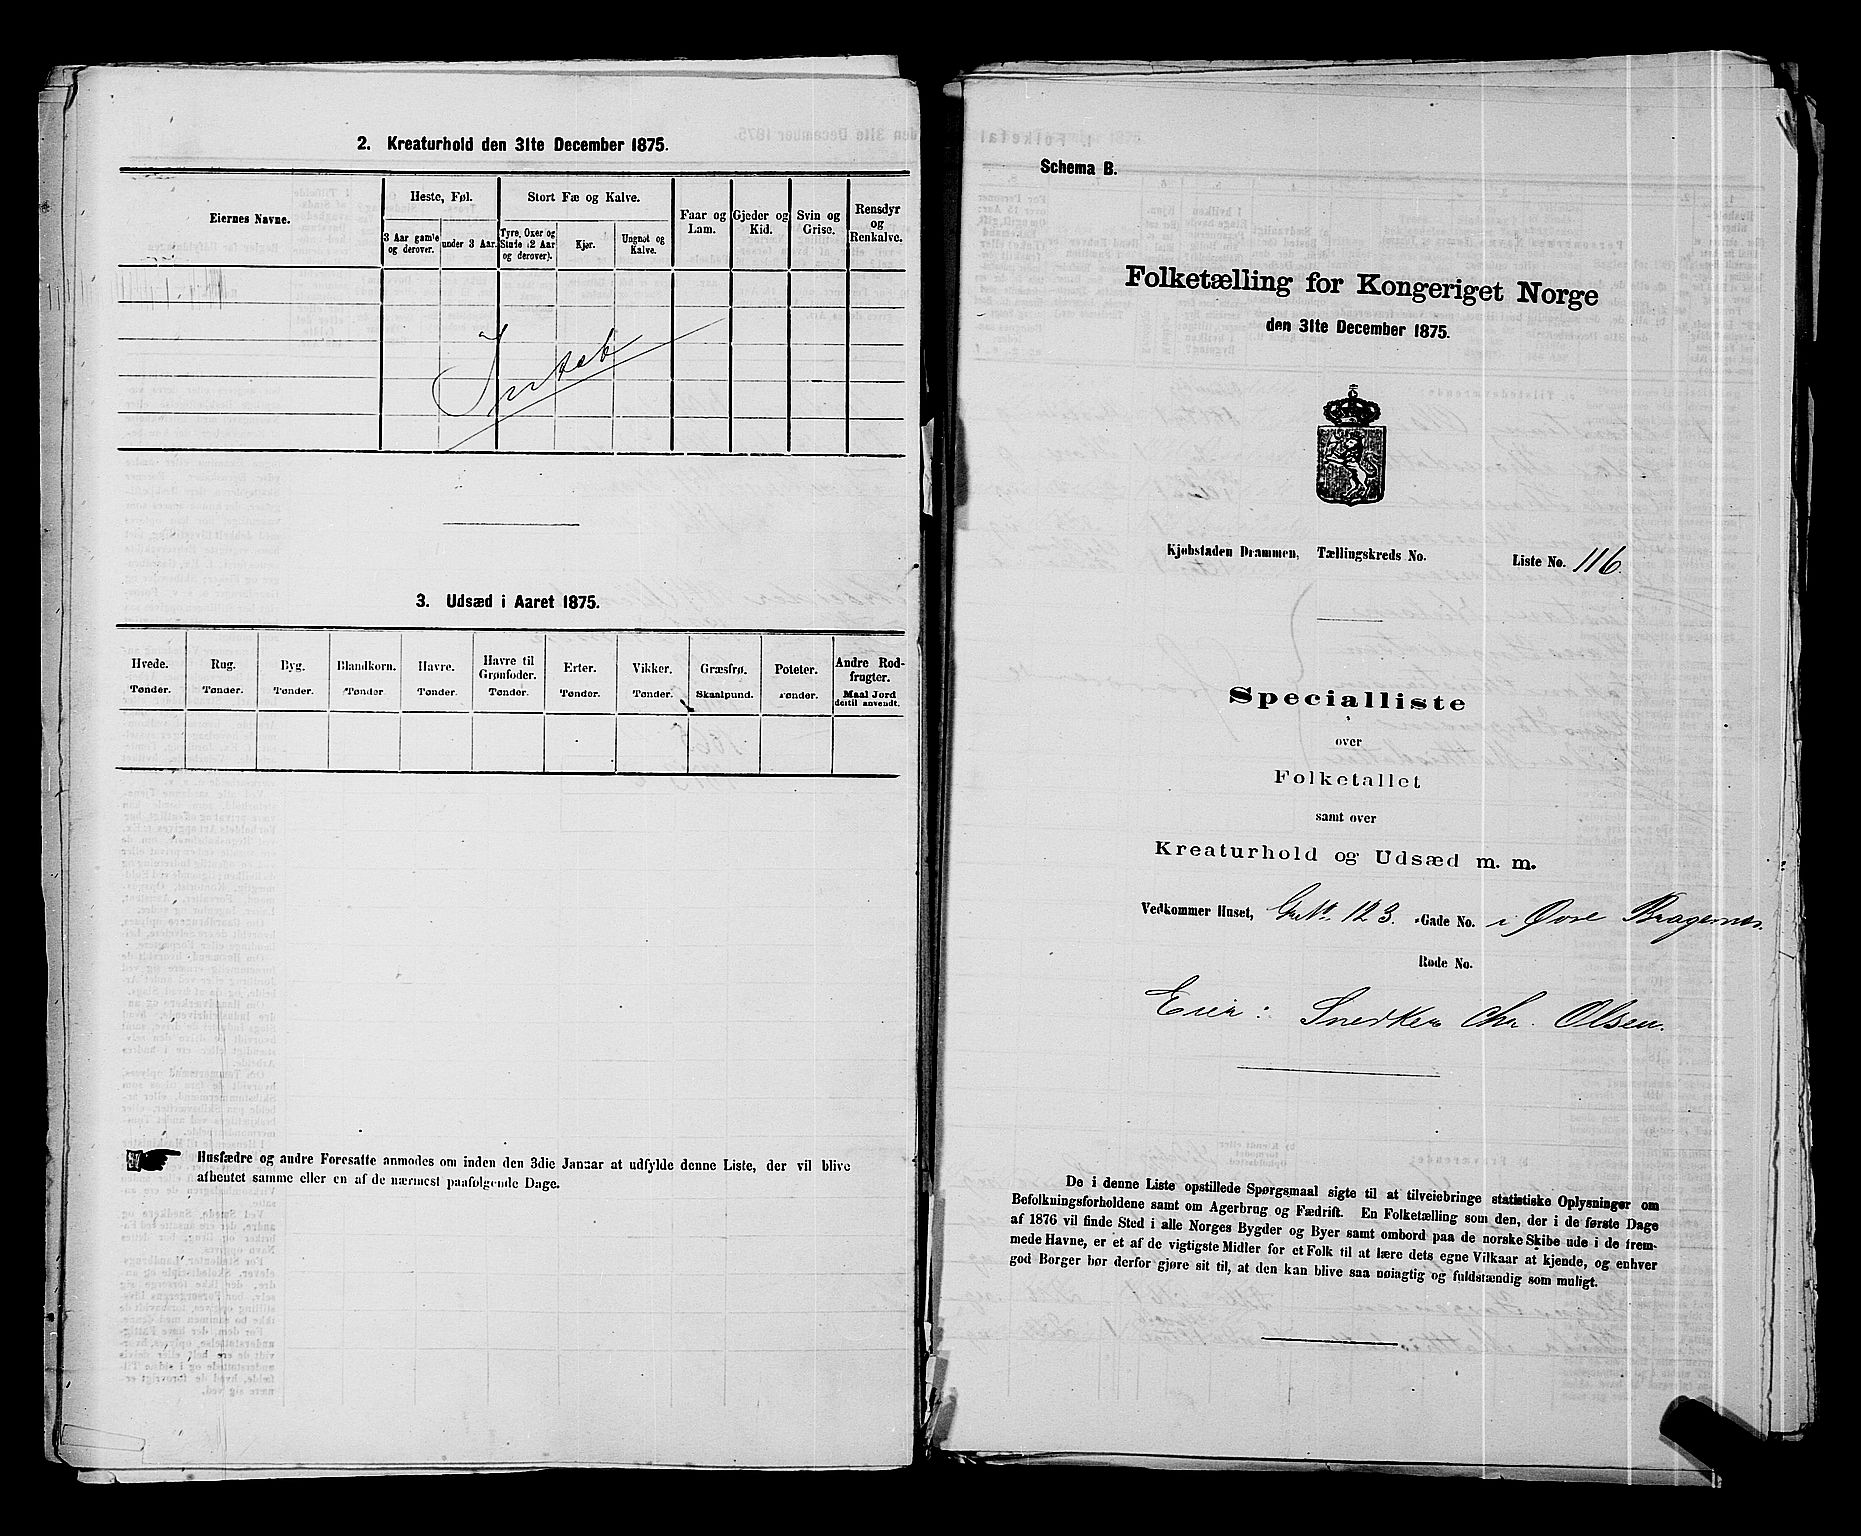 2. Kreaturhold den 31te December 1875.
Eiernes Navne.
Heste, Føl.
3 Aar gamle og derover.
under 3 Aar.
Stort Fæ og Kalve.
Tyre, Oxer og Stude (2 Aar og derover).
Kjør.
Ungnøt og Kalve.
Faar og Lam.
Gjeder og Kid.
Svin og Grise.
Rensdyr og Renkalve.
Intet
3. Udsæd i Aaret 1875.
Hvede. Tønder.
Rug. Tønder.
Byg. Tønder.
Blandkorn. Tønder
Havre. Tønder.
Havre til Grønfoder. Tønder.
Erter. Tønder.
Vikker. Tønder.
Græsfrø. Skaalpund.
Poteter. Tønder.
Andre Rodfrugter. Maal Jord dertil anvendt.
Husfædre og andre Foresatte anmodes om inden den 3die Januar at udfylde denne Liste, der vil blive
afhentet samme eller en af de nærmest paafølgende Dage.
Schema B.
Folketælling for Kongeriget Norge
den 31te December 1875.
Kjøbstaden Drammen, Tællingskreds No. Liste No. 116.
Specialliste
over
Folketallet
samt over
Kreaturhold og Udsæd m. m.
Vedkommer Huset, 123. Gade No. i Øvre Bragernes.
Rode No.
Eier: Snedker Chr. Olsen.
De i denne Liste opstillede Spørgsmaal sigte til at tilveiebringe statistiske Oplysninger om
Befolkningsforholdene samt om Agerbrug og Fædrift. En Folketælling som den, der i de første Dage
af 1876 vil finde Sted i alle Norges Bygder og Byer samt ombord paa de norske Skibe ude i de frem-
mede Havne, er et af de vigtigste Midler for et Folk til at lære dets egne Vilkaar at kjende, og enhver
god Borger bør derfor gjøre sit til, at den kan blive saa nøiagtig og fuldstændig som muligt.